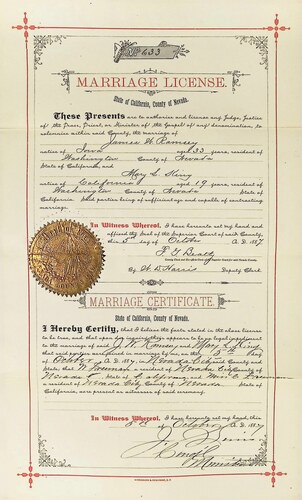 No 633
MARRIAGE LICENSE.
State of California, County of Nevada.
These Presents are to authorize and license any Judge, Justice
of the Peace, Priest, or Minister of the Gospel of any denomination, to
solemnize within said County, the marriage of
James W Ramsey
native of Iowa aged 33 years, resident of
Washington County of Nevada
State of California, and
native of California aged 19 years, resident of
Washington County of Nevada State of
California said parties being of sufficient age and capable of contracting
marriage.
In Witness Whereof, I have hereunto set my hand and
affixed the Seal of the Superior Court of said County,
this 5th day of October A.D. 189
By W. D. Harris Deputy Clerk
MARRIAGE CERTIFICATE.
State of California, County of Nevada.
I Hereby Certify, that I believe the facts stated in the above license
to be true, and that upon due inquiry there appears to be no legal impediment
to the marriage of said J. W. Ramsey and
that said parties were joined in marriage by me, on the 5th day
of October A.D. 189 in Nevada City County
of Nevada that a resident of Nevada City County of
Nevada State of California, and
a resident of Nevada City County of Nevada State of
California, were present as witnesses of said ceremony.
In Witness Whereof, I have hereunto set my hand, this
5th of October A.D. 189
Minister